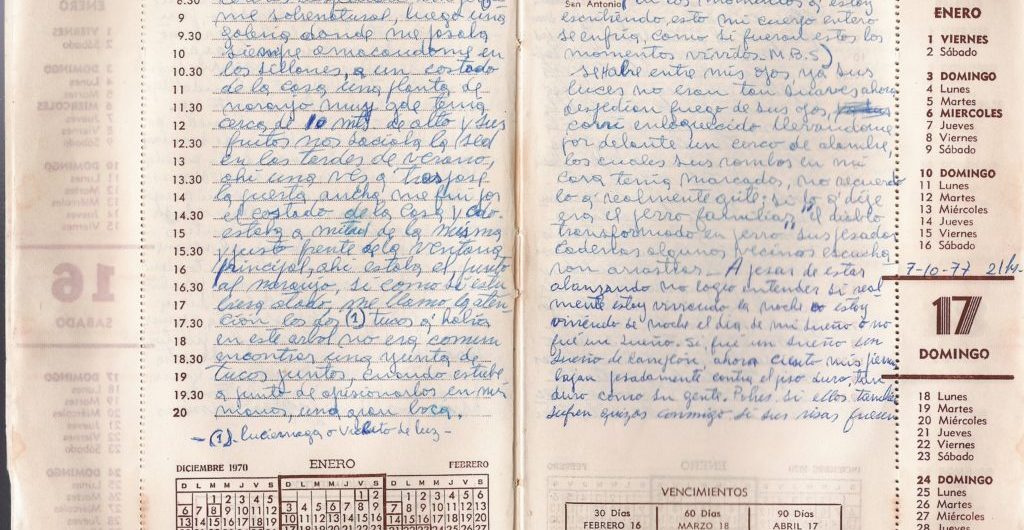 8.30
9 me sobrenatural, luego una
9.30 galeria donde me posaba
10 siempre amacandome en
10.30 los sillones, a un costado
11 de la casa una planta de
11.30 naranjo muy gde tenia
12 cerca de 10 mts de alto y sus
12.30 frutos nos saciaba la sed
13 en las tardes de verano,
13.30 ahi una vez a
14 la puerta ancha me fui por
14.30 el costado de la casa y cdo
15 estaba a mitad de la misma
15.30 y justo frente de la ventana
16 principal, ahi estaba el, junto
16.30 al naranjo, si como si estu
17 biera atado, me llamo la aten
17.30 ción los dos (1) tucos q' habia
18 en este arbol no era comun
18.30 encontrar una yunta de
19 tucos juntos, cuando estube
19.30 a punto de apricionarlos en mis
20 manos, una gran boca,
-(1)- luciernaga o vichito de luz-
DICIEMBRE 1970 ENERO FEBRERO
D L M M J V S
1 2 3 4 5
6 7 8 9 10 11 12
13 14 15 16 17 18 19
D L M M J V S
1 2
3 4 5 6 7 8 9
10 11 12 13 14 15 16
D L M M J V S
1 2 3 4 5 6
7 8 9 10 11 12 13
San Antonio en los momentos q' estoy
escribiendo, esto mi cuerpo entero
se enfria, como si fueran estos los
momentos vividos. M.B.S)
se habre entre mis ojos ya sus
luces no eran tan suaves ahora
despedian fuego de sus ojos,
corri enloquecido llevandome
por delante un cerco de alambre,
los cuales sus rombos en mi
cara tenia marcados, no recuerdo
lo q' realmente grite; si lo q' dije
era el perro familiar, "el diablo
transformado en perro" sus pesadas
cadenas algunos vecinos escucha
ron arrastrar - A pesar de estar
alcanzando no logro entender si real
mente estoy viviendo la noche o estoy
viviendo de noche el dia de mi sueño o no
fué un sueño. Si fué un sueño sin
sueño de camaleón, ahora cuanto mis piernas
bajan pesadamente contra el piso duro, tan
duro como su gente. Pobres si ellos tambien
sufren quizas conmigo si sus risas fuesen
VENCIMIENTOS
30 Días 60 Días 90 Días
FEBRERO 16 MARZO 18 ABRIL 17
ENERO
1 VIERNES
2 Sábado
3 DOMINGO
4 Lunes
5 Martes
6 MIERCOLES
7 Jueves
8 Viernes
9 Sábado
10 DOMINGO
11 Lunes
12 Martes
13 Miércoles
14 Jueves
15 Viernes
16 Sábado
7-10-77 21 hs.
17
DOMINGO
18 Lunes
19 Martes
20 Miércoles
21 Jueves
22 Viernes
23 Sábado
24 DOMINGO
25 Lunes
26 Martes
27 Miércoles
28 Jueves